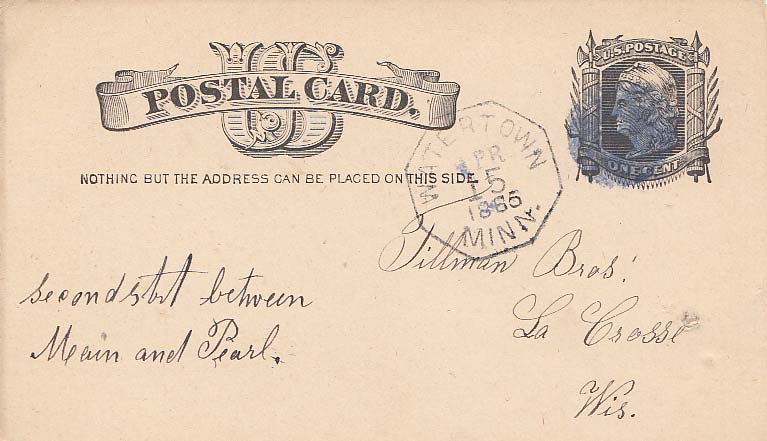 US
POSTAL CARD.
U.S. POSTAGE
ONE CENT
NOTHING BUT THE ADDRESS CAN BE PLACED ON THIS SIDE.
WATERTOWN
APR
15
1886
MINN.
Tillman Bros.
La Crosse
Wis.
second strt between
Main and Pearl.